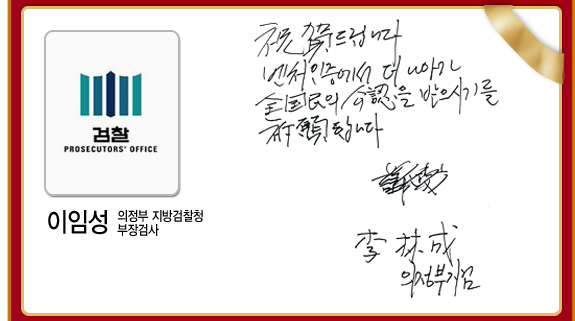 검찰
PROSECUTORS' OFFICE
이임성 의정부 지방검찰청
부장검사
祝賀드립니다
벤처인증에서 더 나아가
全国民의 公認을 받으시기를
祈願합니다
李林成
의정부지검